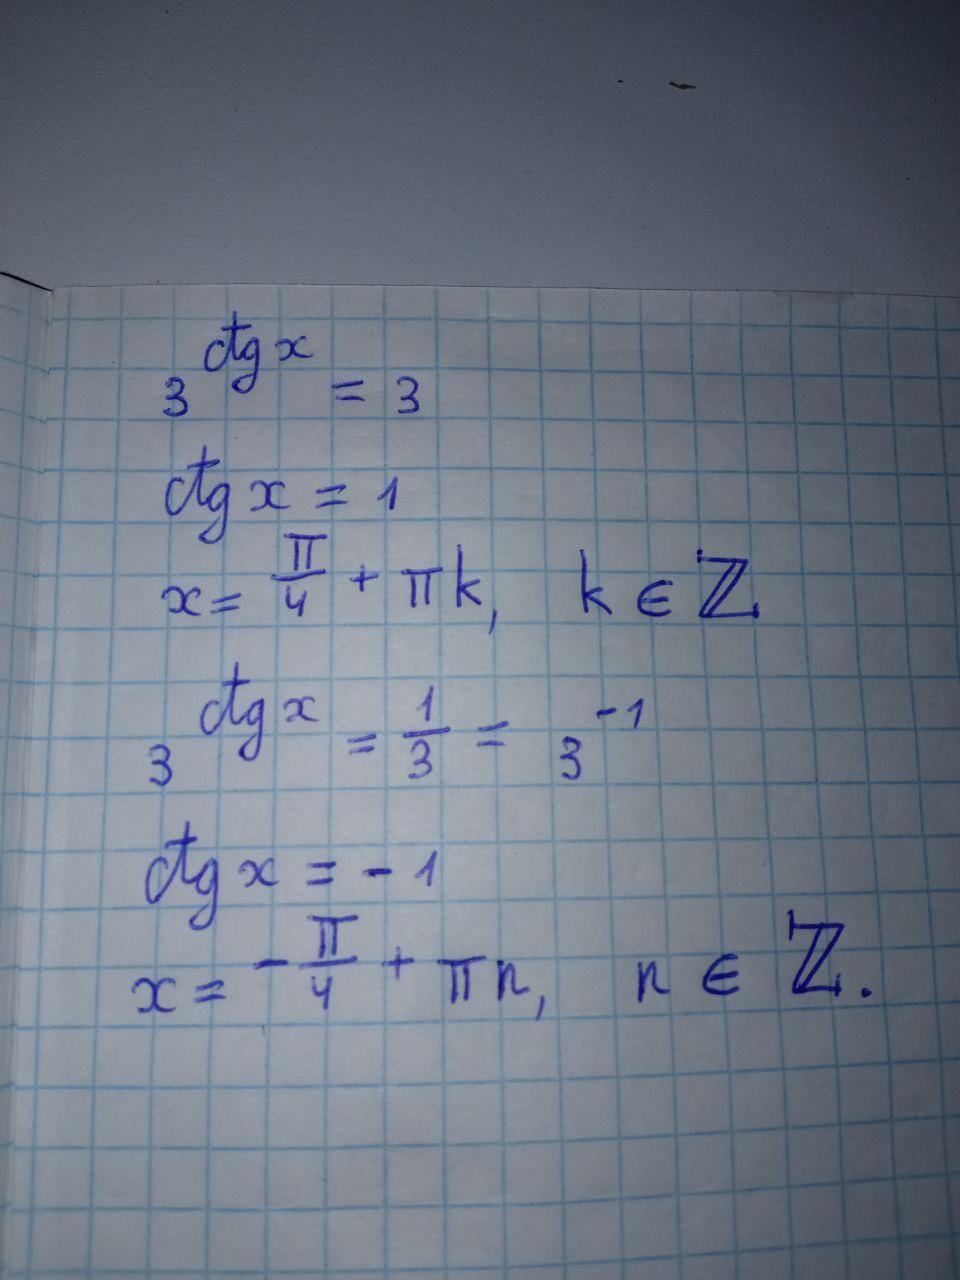 3^{ctg x} = 3
ctg x = 1
x = \frac{π}{4} + πk, k ∈ ℤ
3^{ctg x} = \frac{1}{3} = 3^{-1}
ctg x = -1
x = -\frac{π}{4} + πn, n ∈ ℤ.